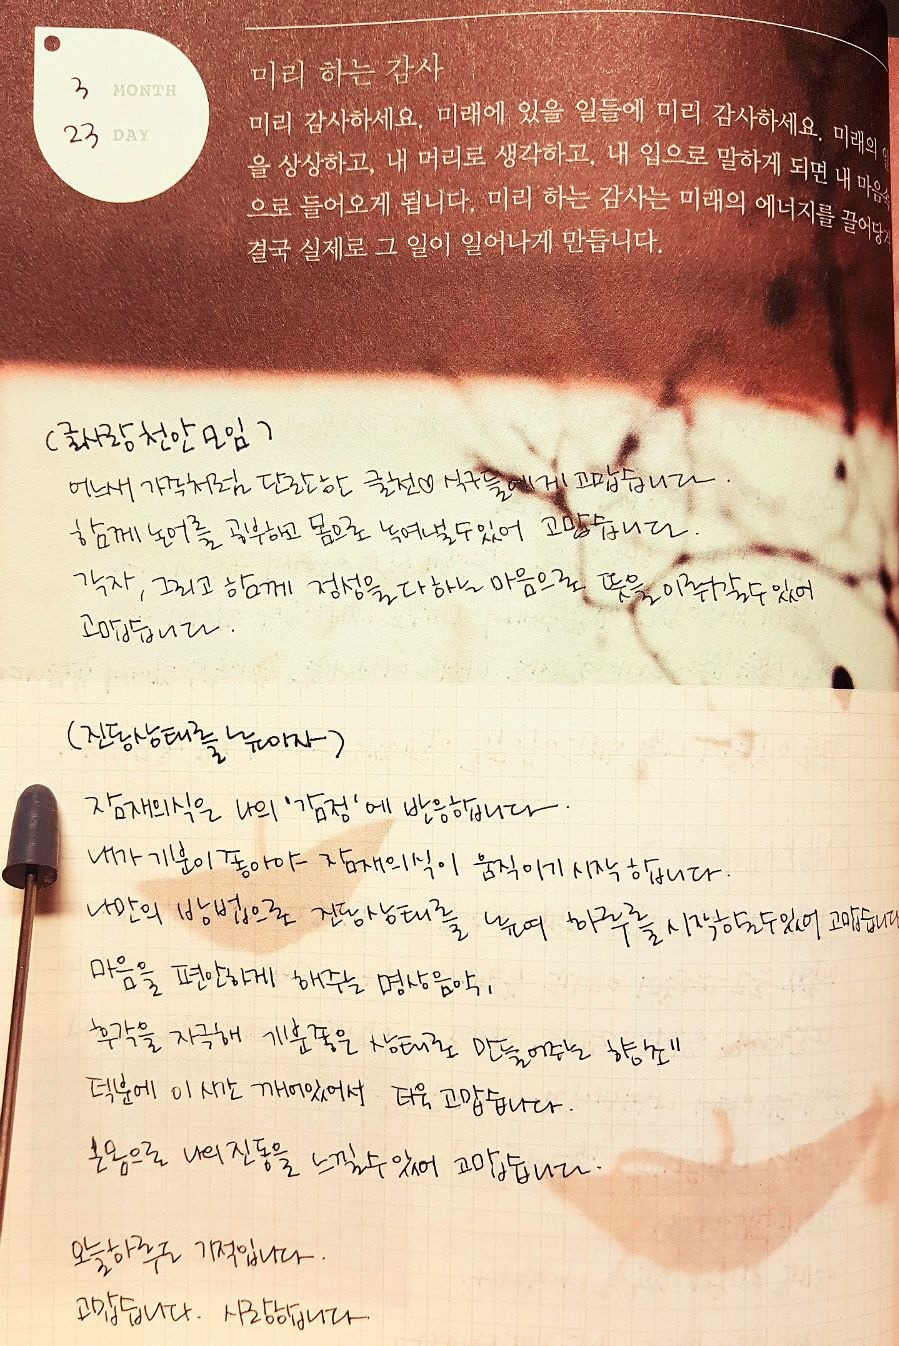 3 MONTH
23 DAY
미리 하는 감사
미리 감사하세요. 미래에 있을 일들에 미리 감사하세요. 미래의
을 상상하고, 내 머리로 생각하고, 내 입으로 말하게 되면 내 마음속
으로 들어오게 됩니다. 미리 하는 감사는 미래의 에너지를 끌어당겨
결국 실제로 그 일이 일어나게 만듭니다.
(글사랑천안모임)
어느새 가족처럼 단란한 글천♡ 식구들에게 고맙습니다.
함께 논어를 공부하고 몸으로 녹여낼수있어 고맙습니다.
각자, 그리고 함께 정성을다하는 마음으로 뜻을이뤄갈수있어
고맙습니다.
(진동상태를 높이자)
잠재의식은 나의 '감정'에 반응합니다.
내가 기분이 좋아야 잠재의식이 움직이기 시작합니다.
나만의 방법으로 진동상태를 높여 하루를 시작할수있어 고맙습니다
마음을 편안하게 해주는 명상음악,
후각을 자극해 기분좋은 상태로 만들어주는 향초"
덕분에 이 시간 깨어있어서 더욱 고맙습니다.
온몸으로 나의진동을 느낄수있어 고맙습니다.
오늘하루도 기적입니다.
고맙습니다. 사랑합니다.